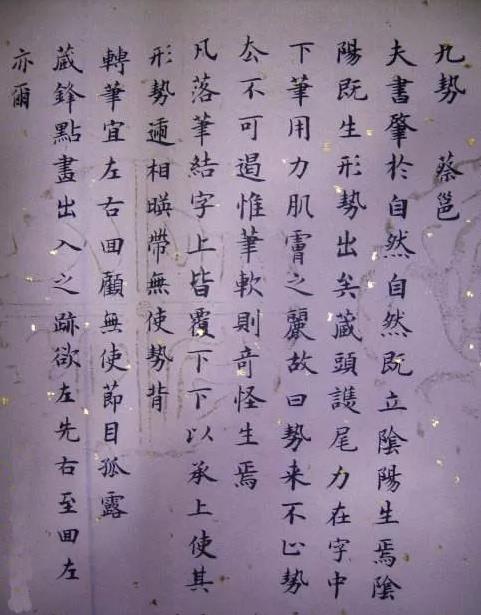 九勢 蔡邕
夫書肇於自然自然既立陰陽生焉陰
陽既生形勢出矣蔵頭護尾力在字中
下筆用力肌膚之麗故曰勢来不止勢
厺不可遏惟筆軟則竒怪生焉
凡落筆結字上皆覆下下以承上使其
形勢遞相暎帶無使勢背
轉筆宜左右回顧無使節目孤露
蔵鋒點畫出入之跡欲左先右至回左
亦爾